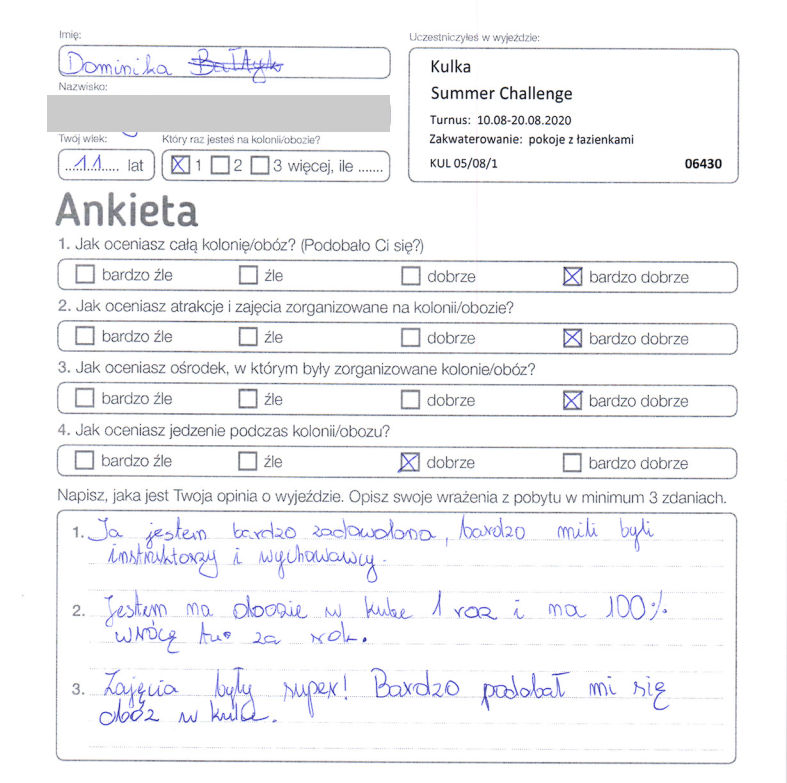 Imię:
Dominika
Nazwisko:
Twój wiek:
11 lat
Który raz jesteś na kolonii/obozie?
1 2 3 więcej, ile .......
Uczestniczyłeś w wyjeździe:
Kulka
Summer Challenge
Turnus: 10.08-20.08.2020
Zakwaterowanie: pokoje z łazienkami
KUL 05/08/1 06430
Ankieta
1. Jak oceniasz całą kolonię/obóz? (Podobało Ci się?)
bardzo źle źle dobrze bardzo dobrze
2. Jak oceniasz atrakcje i zajęcia zorganizowane na kolonii/obozie?
bardzo źle źle dobrze bardzo dobrze
3. Jak oceniasz ośrodek, w którym były zorganizowane kolonie/obóz?
bardzo źle źle dobrze bardzo dobrze
4. Jak oceniasz jedzenie podczas kolonii/obozu?
bardzo źle źle dobrze bardzo dobrze
Napisz, jaka jest Twoja opinia o wyjeździe. Opisz swoje wrażenia z pobytu w minimum 3 zdaniach.
1. Ja jestem bardzo zadowolona, bardzo mili byli
instruktorzy i wychowawcy.
2. Jestem na obozie w kulce 1 raz i na 100%
wrócę tu za rok.
3. Zajęcia były super! Bardzo podobał mi się
obóz w kulce.